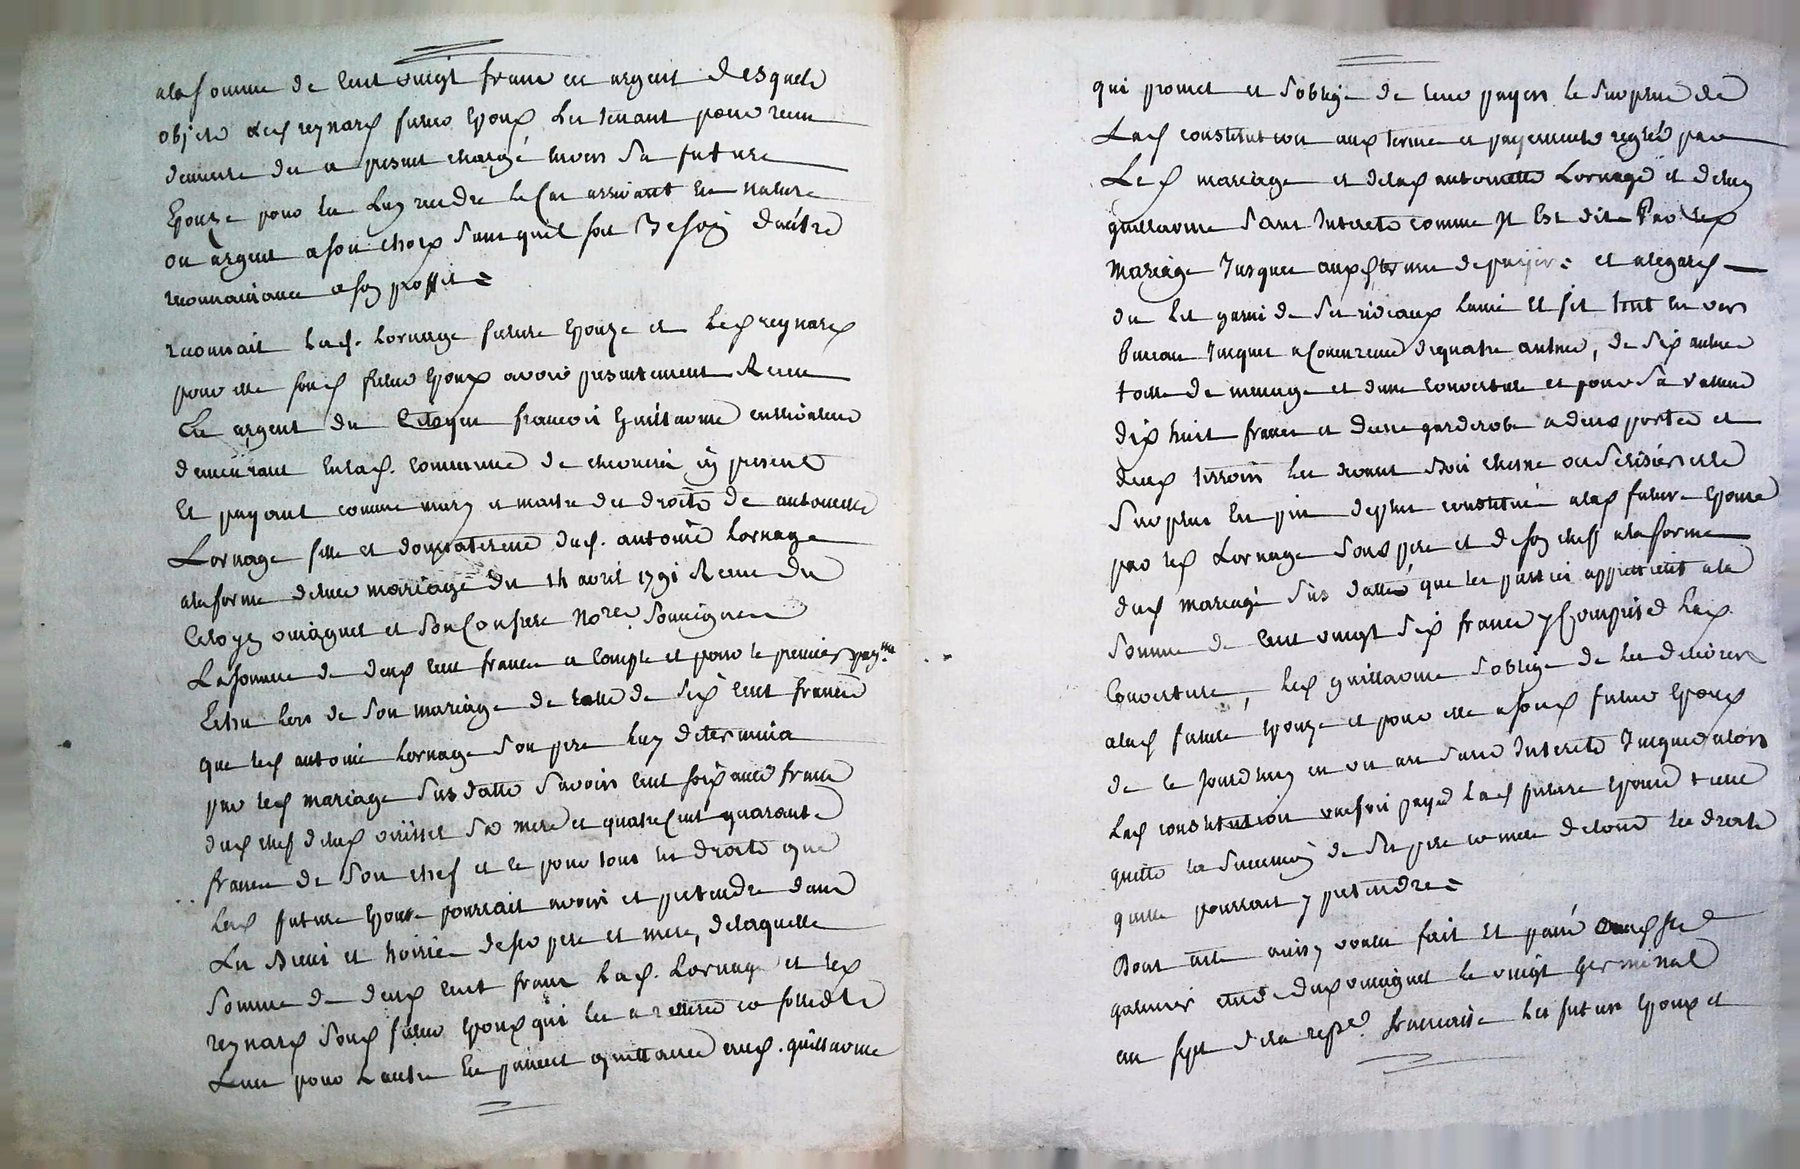 alasomme de cent vingt franc en argent desquels
objets led reynard futur Epoux les tenant pour recue
demeure des a present chargé envers sa future
Epouze pour les luy rendre le Cas arrivant en nature
ou argent a son choix sans quil soit Besoin dautre
reconnaissance a son proffit =
reconnait lad. Lornage future Epouze et led reynard
pour elle sond futur Epoux avoir presentement Recue
En argent du Citoyen francois Guillaume cultivateur
demeurant enlad. commune de present
Et payant comme mary et maitre des droits de antoinette
Lornage fille et donnataire dud. antoine Lornage
alaforme deleur mariage du 14 avril 1791 Recue du
Citoyen ouvaguet et Son Confrere No.re
Lasomme de deux cent francs a compte et pour le premier pay.nt
Echu lors de Son mariage de celle de Six cent francs
que led antoine Lornage Son pere luy determina
par led mariage Sus datté Savoir cent soixante francs
dud chef delad Sa mere et quatre Cent quarante
francs de Son chef et ce pour tous les droits que
lad future Epouse pourrait avoir et pretendre dans
Les Biens et hoirie deses pere et mere, delaquelle
Somme de deux cent franc lad. Lornage et led
reynard Sond futur Epoux qui les a retirée
Lun pour Lautre En passent quittance aud. guillaume
qui promet et Soblige de leur payer le Surplus de
Lad constitution aux termes et payements reglés par
Led mariage et delad antoinette Lornage et deluy
guillaume Sans Interets comme Il Est dit Par led
mariage Jusques auxd termes de payer = et alegard
du lit garni de Ses rideaux laine Et fil tout en vert
bureau Jusques a Concurrence dequatre autres, de Six aulnes
toille de menage et dune couverture et pour Sa valeur
dix huit francs et dune garderobe a deux portes et
deux tirroirs les devant Bois chesne ou Serisier elle
Surplus En pin deplus constitués alad future Epouse
par led Lornage Sond pere et de son chef alaforme
dud mariage Sus datté que les parties appretient ala
Somme de cent vingt Six francs y Compris lad
Couverture, led guillaume Soblige de les delivrer
alad future Epouze et pour elle a sond futur Epoux
de ce Jourdhuy en un an Sans Interets Jusques alors
Lad constitution unefois payée lad future Epouse tiens
quitte la Succession de Ses pere et mere detous les droits
quelle pourrait y pretendre =
Dont acte ainsy voulu fait Et passé
etude dud ouvaguet le vingt Germinal
an Sept de la rep.e francaise les futurs Epoux et